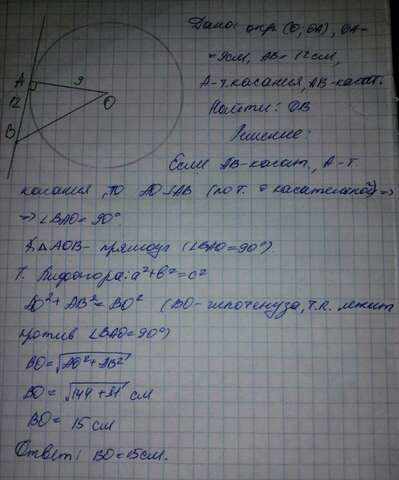 Дано: окр (O, OA), OA-
= 9см, AB = 12 см,
A-т. касания, AB-касат.
Найти: OB
Решение:
A 9
O
12
B
Если AB-касат., A-т.
касания, то AO⊥AB (по т. о касательной) =>
=> ∠BAO = 90°
△AOB- прямоуг (∠BAO=90°).
Т. Пифагора: a²+b²=c²
AO²+AB²=BO² (BO-гипотенуза, т.к. лежит
против ∠BAO=90°)
BO=√AO²+AB²
BO=√144+81 см
BO= 15 см
Ответ: BO=15см.